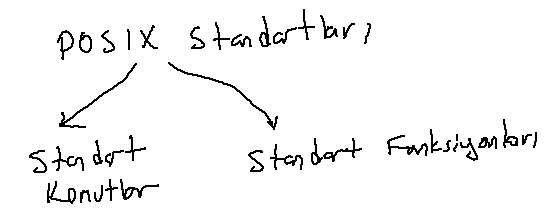 POSIX Standartları
Standart
Komutlar
Standart Fonksiyonları